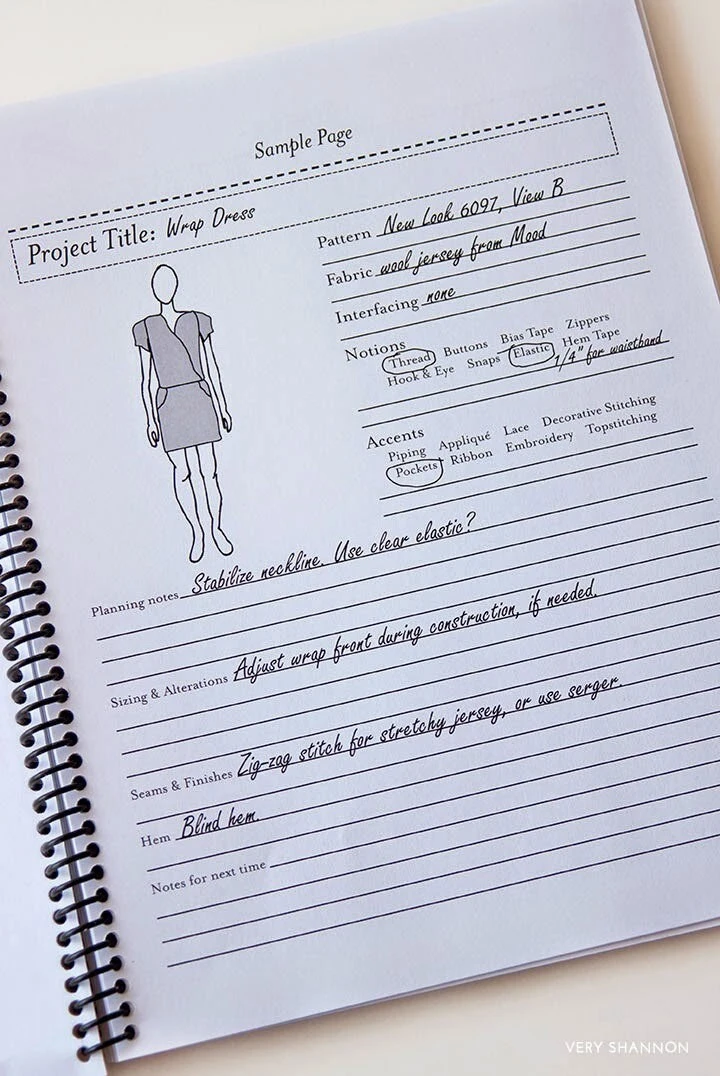 Sample Page
Project Title: Wrap Dress
Pattern New Look 6097, View B
Fabric wool jersey from Mood
Interfacing none
Notions
Thread Buttons Bias Tape Zippers
Hook & Eye Snaps Elastic Hem Tape
1/4" for waistband
Accents
Piping Appliqué Lace Decorative Stitching
Pockets Ribbon Embroidery Topstitching
Planning notes Stabilize neckline. Use clear elastic?
Sizing & Alterations Adjust wrap front during construction, if needed.
Seams & Finishes Zig-zag stitch for stretchy jersey, or use serger.
Hem Blind hem.
Notes for next time
VERY SHANNON